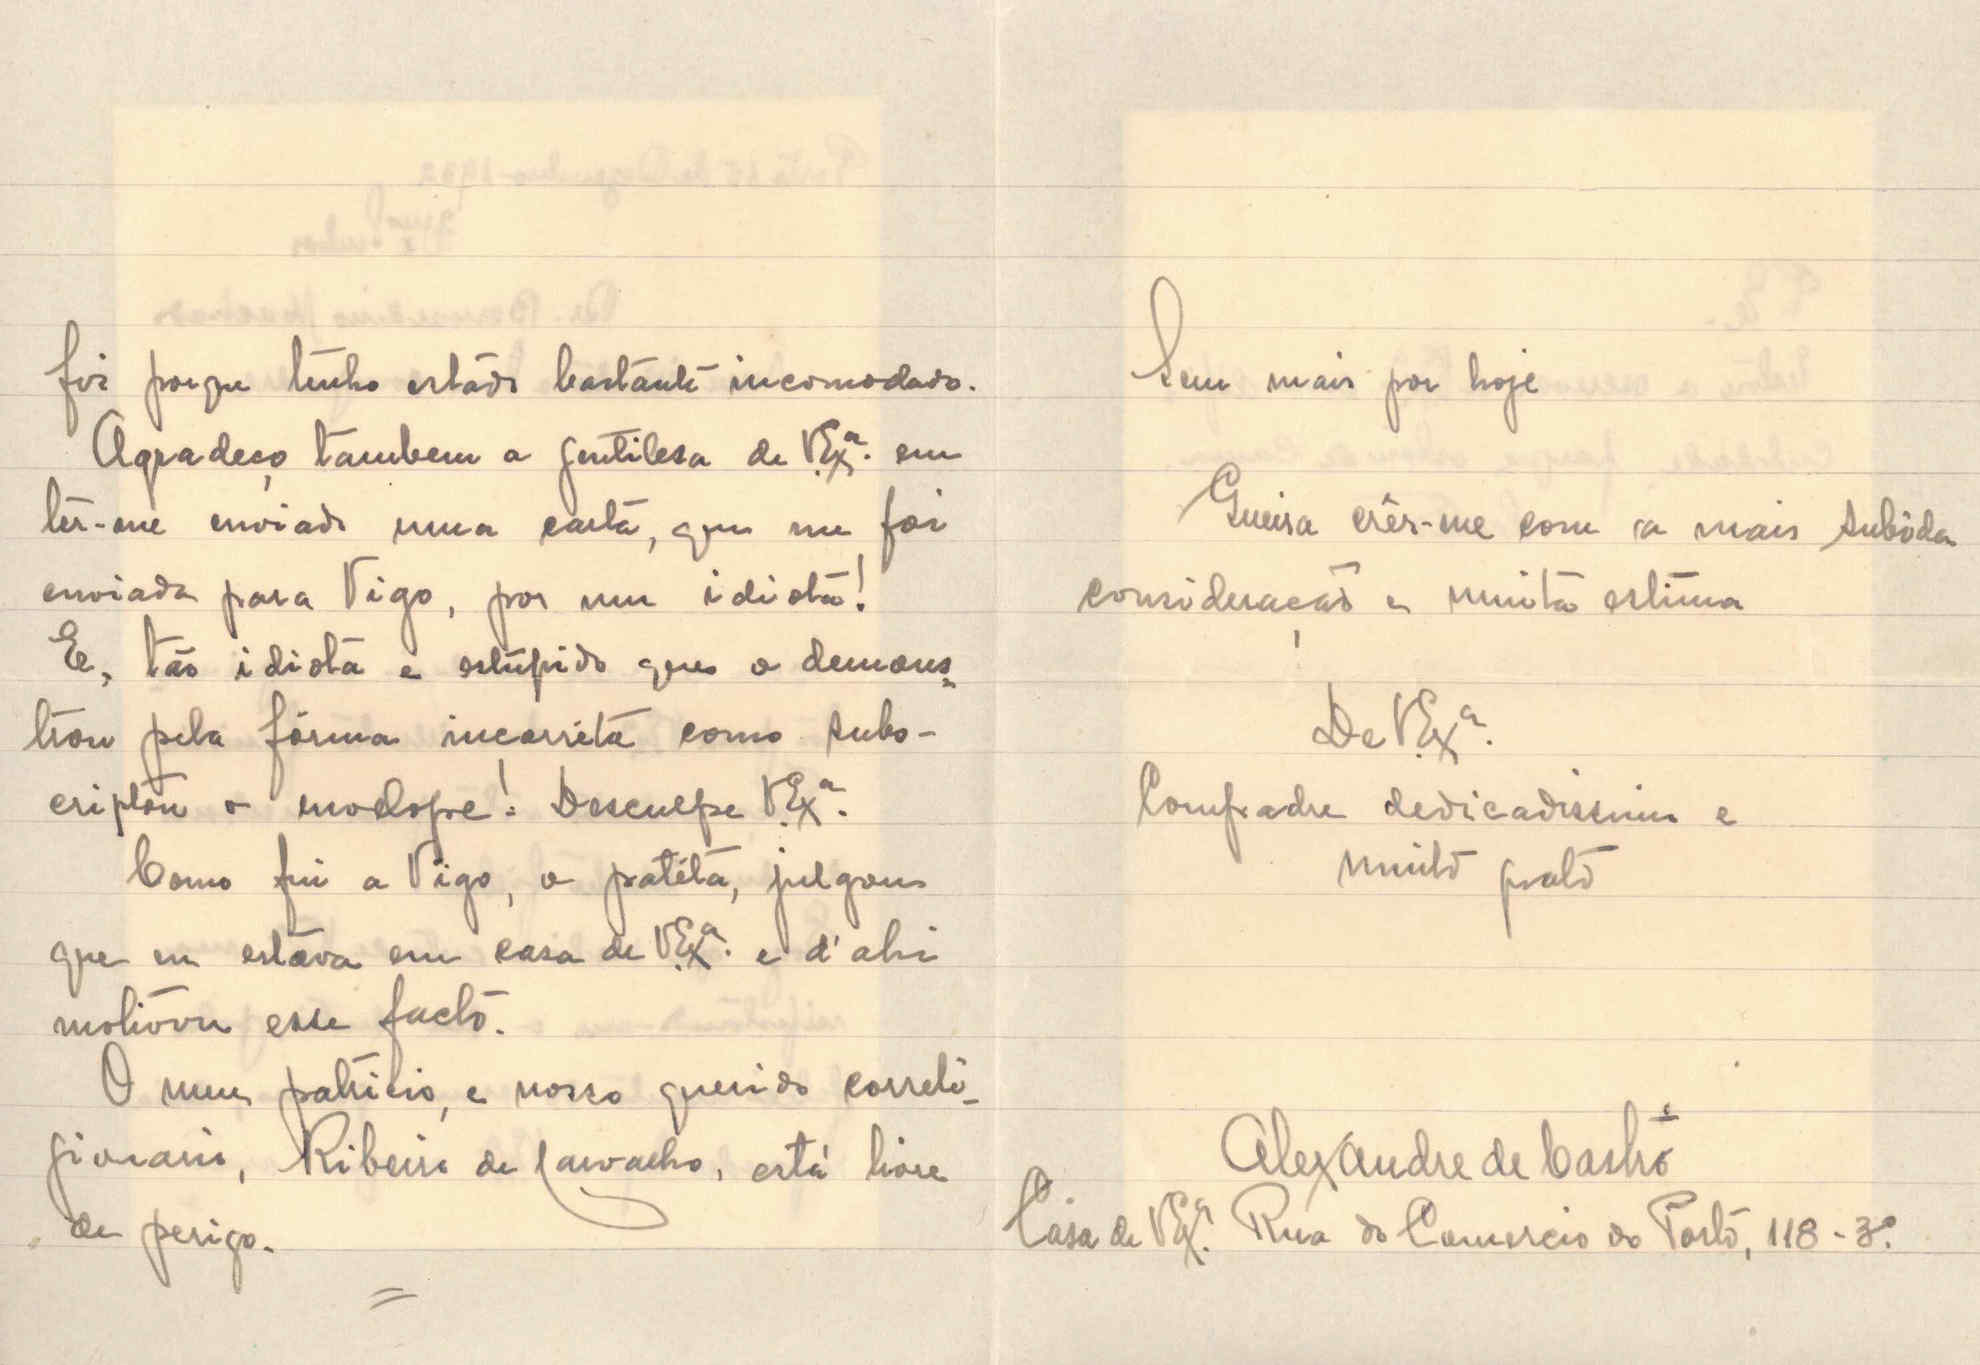 foi porque tenho estado bastante incomodado.
Agradeço tambem a gentilesa de V.Exª. em
ter-me enviado uma carta, que me foi
enviada para Vigo, por um idiota!
E, tão idiota e estupido que o demons-
trou pela fórma incorréta como subs-
criptou o envelope! Desculpe V.Exª.
Como fui a Vigo, o patéta, julgou
que eu estava em casa de V.Exª. e d'ahi
motivou esse facto.
O meu patricio, e nosso querido correli-
gionario, Ribeiro de Carvalho, está livre
de perigo.
Sem mais por hoje
Queira crêr-me com a mais subida
consideração e muita estima
De V.Exª.
Confrade dedicadissimo e
muito grato
Alexandre de Castro
Casa de V.Exª. Rua do Comercio do Porto, 118-3º.